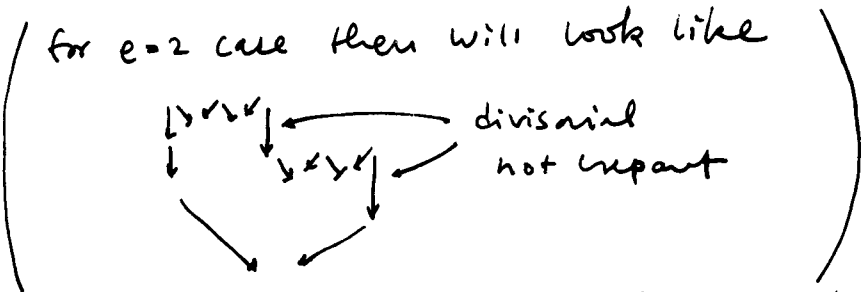 (for e=2 case then will look like
divisorial
not crepant)